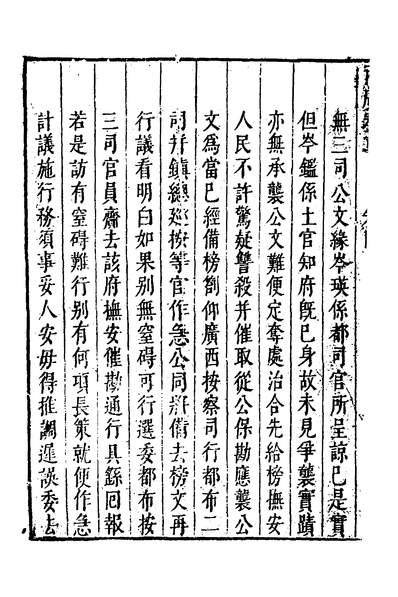 無三司公文緣岑瑛係都司官所呈諒已是實
但岑鑑係土官知府旣已身故未見爭襲實蹟
亦無承襲公文難便定奪處治合先給榜撫安
人民不許驚疑讐殺并催取從公保勘應襲公
文爲當已經備榜劄仰廣西按察司行都布二
司并鎮總巡按等官作急公同將備去榜文再
行議看明白如果別無窒碍可行選委都布按
三司官員齎去該府撫安催勘通行具繇回報
若是訪有窒碍難行別有何項長策就便作急
計議施行務須事妥人安毋得推調遲誤委去